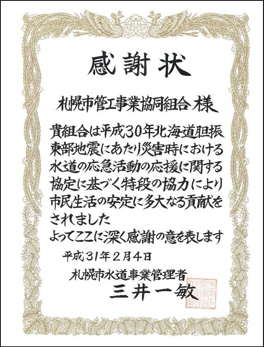 感謝状
札幌市管工事業協同組合様
貴組合は平成30年北海道胆振
東部地震にあたり災害時における
水道の応急活動の応援に関する
協定に基づく特段の協力により
市民生活の安定に多大なる貢献を
されました
よってここに深く感謝の意を表します
平成31年2月4日
札幌市水道事業管理者
三井一敏